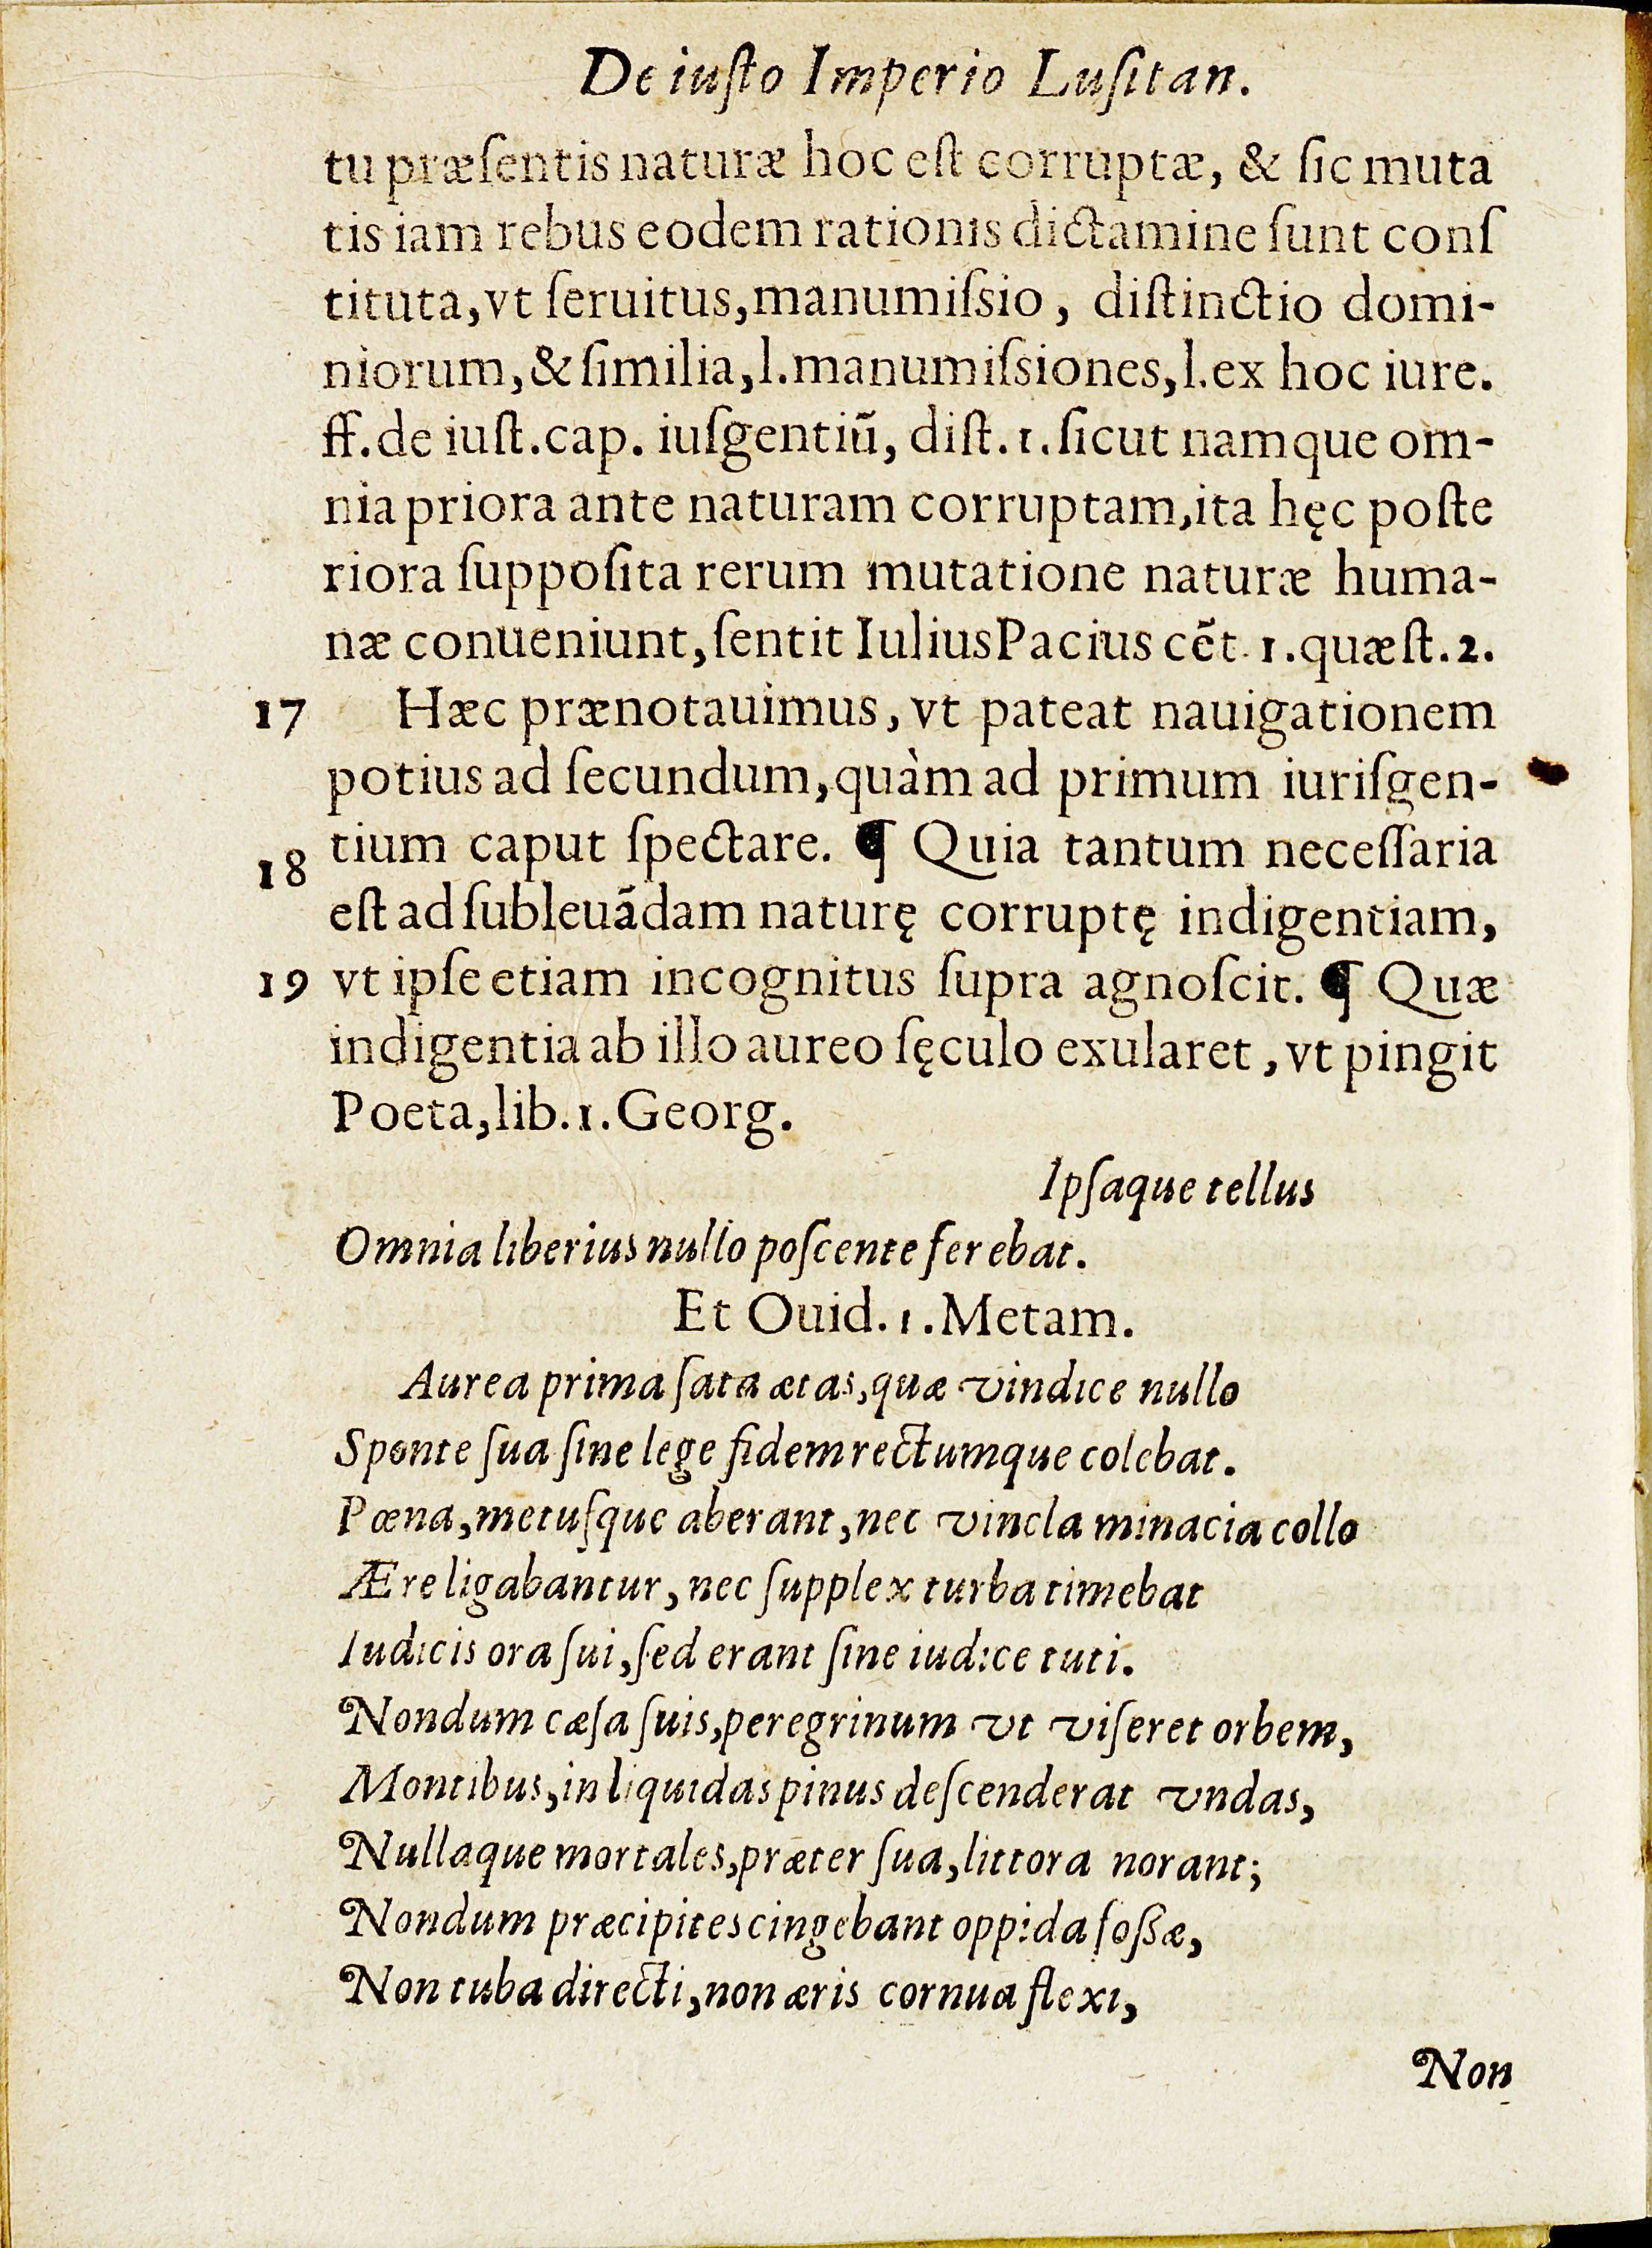 De iuſto Imperio Luſitan.
tu præſentis naturæ hoc eſt corruptæ, & ſic muta
tis iam rebus eodem rationis dictamine ſunt conſ
tituta, vt ſeruitus, manumiſsio, diſtinctio domi-
niorum, & ſimilia, l. manumiſsiones, l. ex hoc iure.
ff. de iuſt. cap. iuſgentiũ, diſt. 1. ſicut namque om-
nia priora ante naturam corruptam, ita hęc poſte
riora ſuppoſita rerum mutatione naturæ huma-
næ conueniunt, ſentit Iulius Pacius cẽt. 1. quæſt. 2.
17 Hæc prænotauimus, vt pateat nauigationem
potius ad ſecundum, quàm ad primum iuriſgen-
18 tium caput ſpectare. ¶ Quia tantum neceſſaria
eſt ad ſubleuãdam naturę corruptę indigentiam,
19 vt ipſe etiam incognitus ſupra agnoſcit. ¶ Quæ
indigentia ab illo aureo ſęculo exularet, vt pingit
Poeta, lib. 1. Georg.
Ipſaque tellus
Omnia liberius nullo poſcente ferebat.
Et Ouid. 1. Metam.
Aurea prima ſata ætas, quæ vindice nullo
Sponte ſua ſine lege fidem rectumque colebat.
Pœna, metuſque aberant, nec vincla minacia collo
Ære ligabantur, nec ſupplex turba timebat
Iudicis ora ſui, ſed erant ſine iudice tuti.
Nondum cæſa ſuis, peregrinum vt viſeret orbem,
Montibus, in liquidas pinus deſcenderat vndas,
Nullaque mortales, præter ſua, littora norant;
Nondum præcipites cingebant oppida foſſæ,
Non tuba directi, non æris cornua flexi,
Non